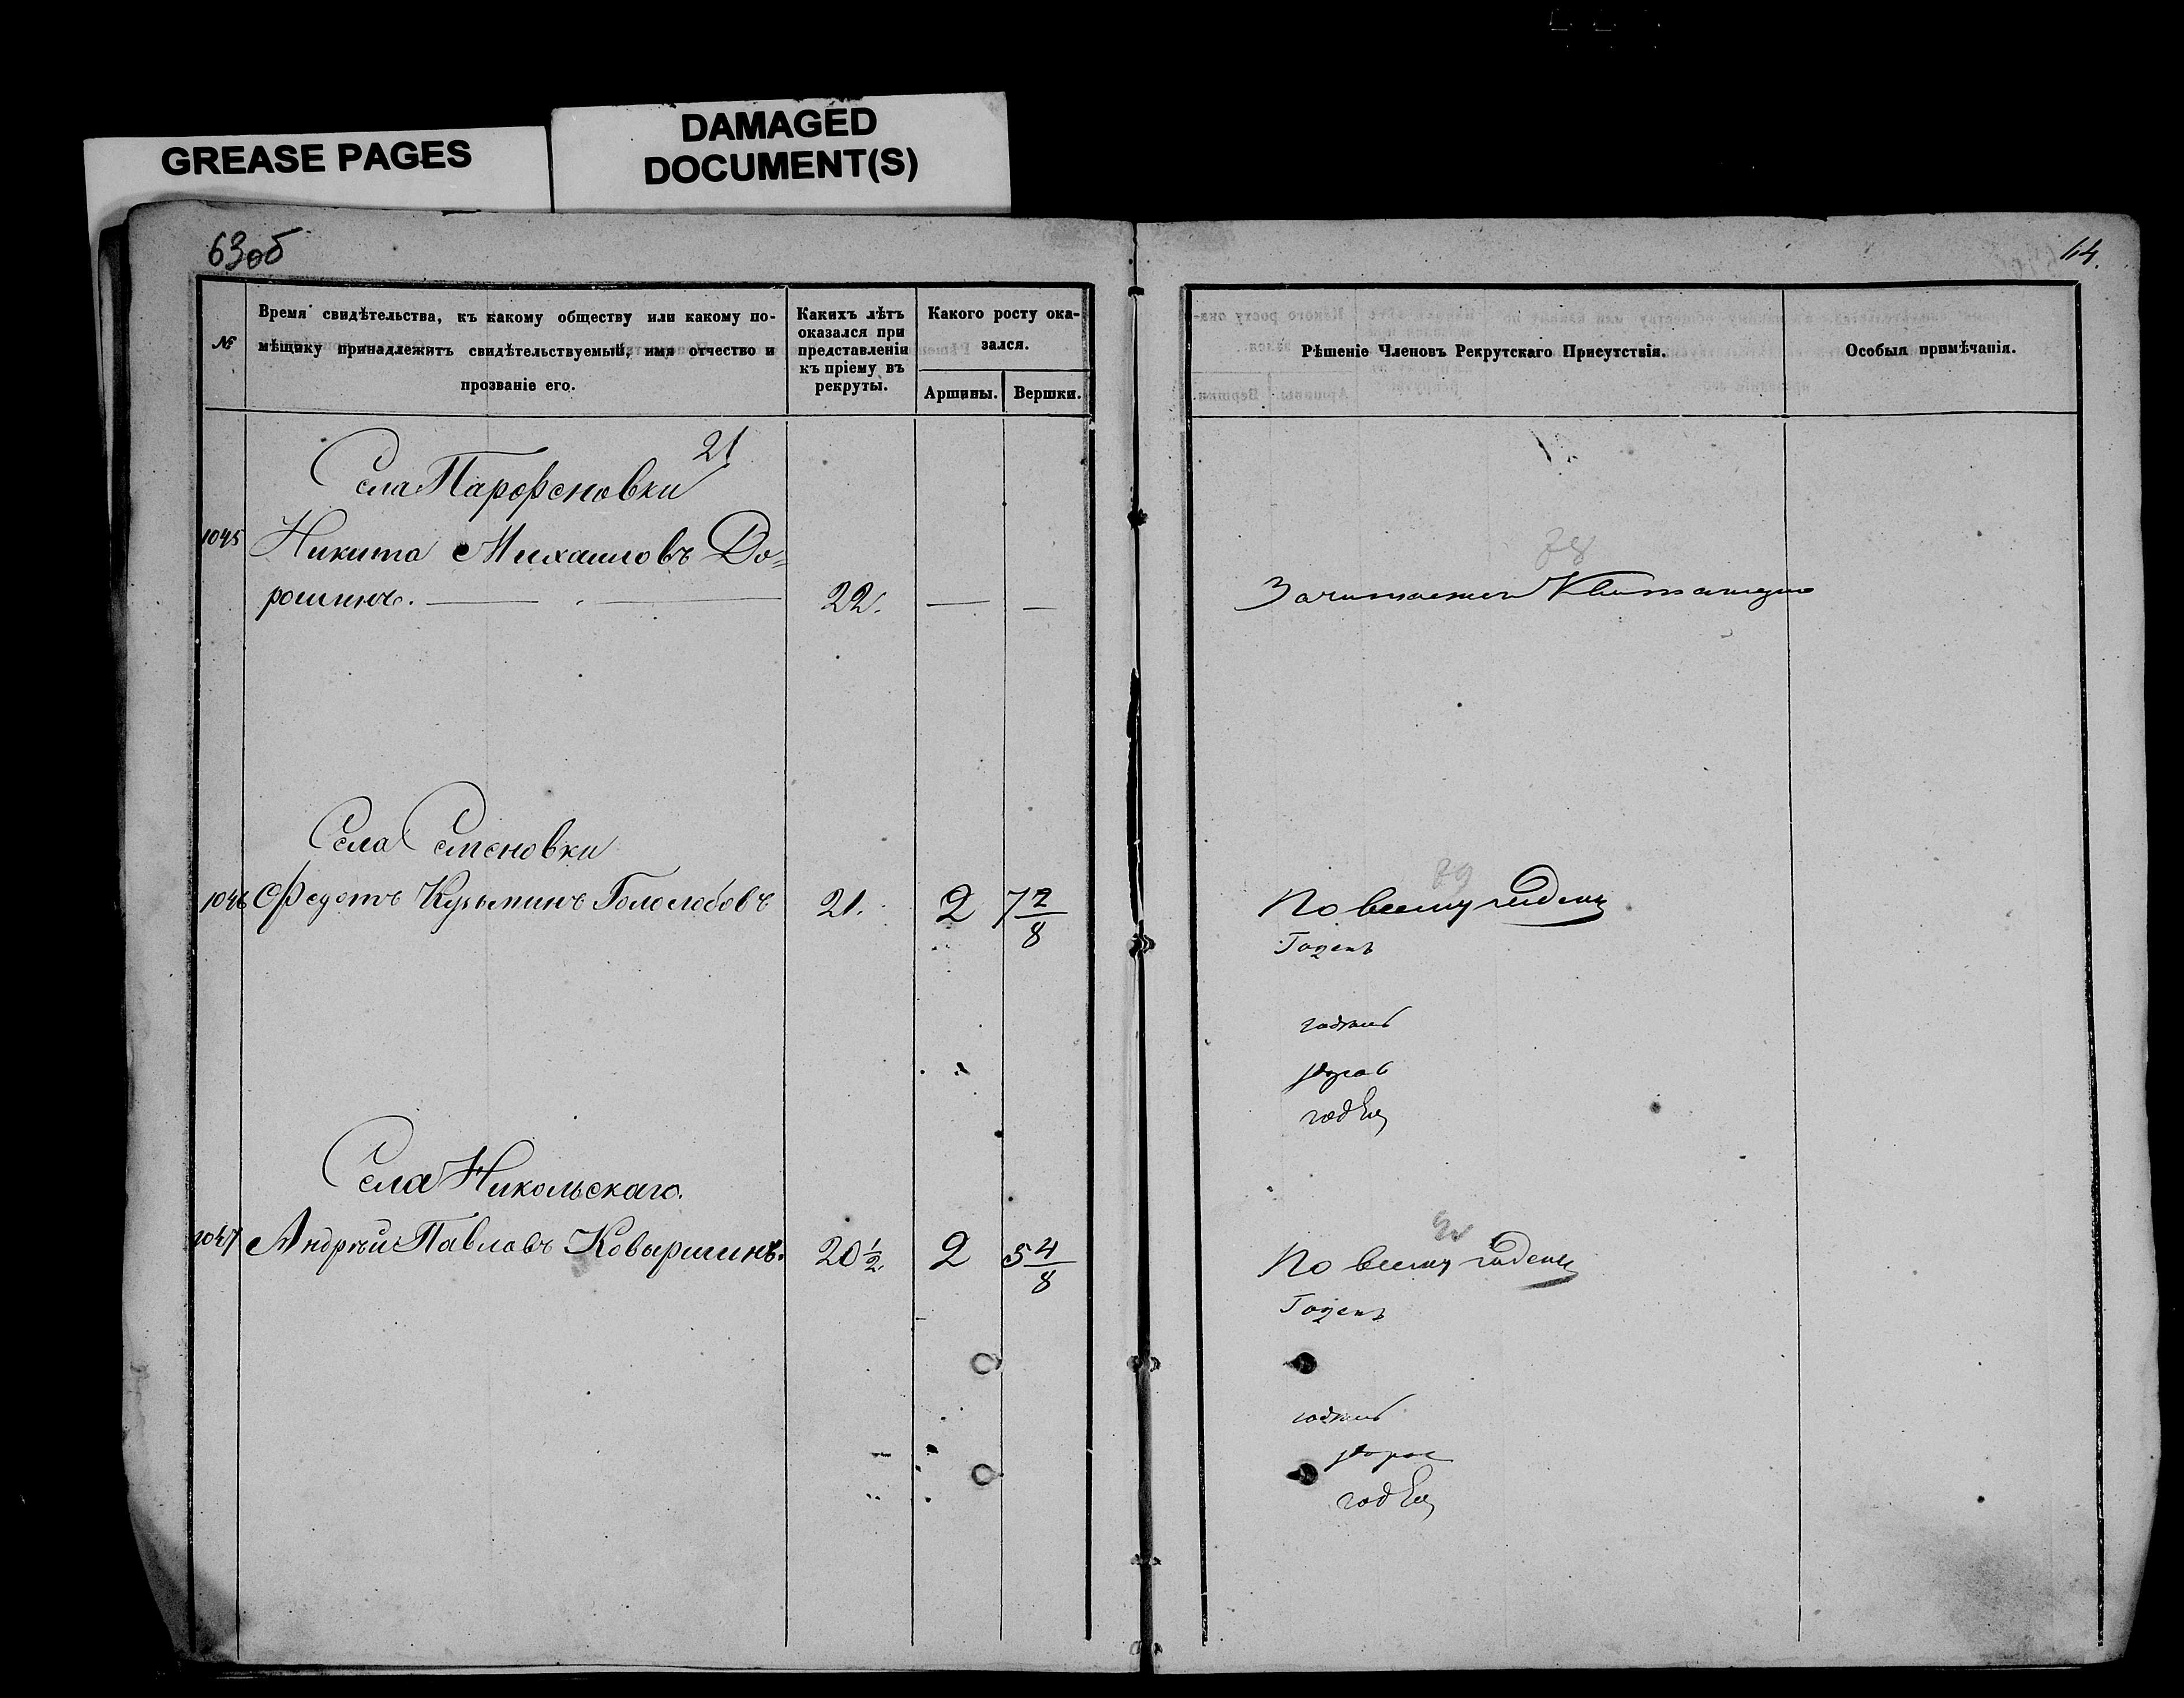 GREASE PAGES
DAMAGED
DOCUMENT(S)
63об
64.
№
Время свидѣтельства, къ какому обществу или какому по-
мѣщику принадлежитъ свидѣтельствуемый, имя отчество и
прозваніе его.
Какихъ лѣтъ
оказался при
представленіи
къ пріему въ
рекруты.
Какого росту ока-
зался.
Аршины.
Вершки.
Рѣшеніе Членовъ Рекрутскаго Присутствія.
Особыя примѣчанія.
21
Села Парфеновки
1045 Никита Михаиловъ До=
рошинъ. 22.
78
Зачитается Квитанцію
Села Семеновки
1046 Федотъ Кузьминъ Гололобовъ 21. 2 7 7/8
79
По всему годенъ
Годенъ
годенъ
здоров
годенъ
Села Никольскаго.
1047 Андрей Павловъ Ковыршинъ. 20 1/2 2 5 4/8
По всему годенъ
Годенъ
годенъ
здоров
годенъ